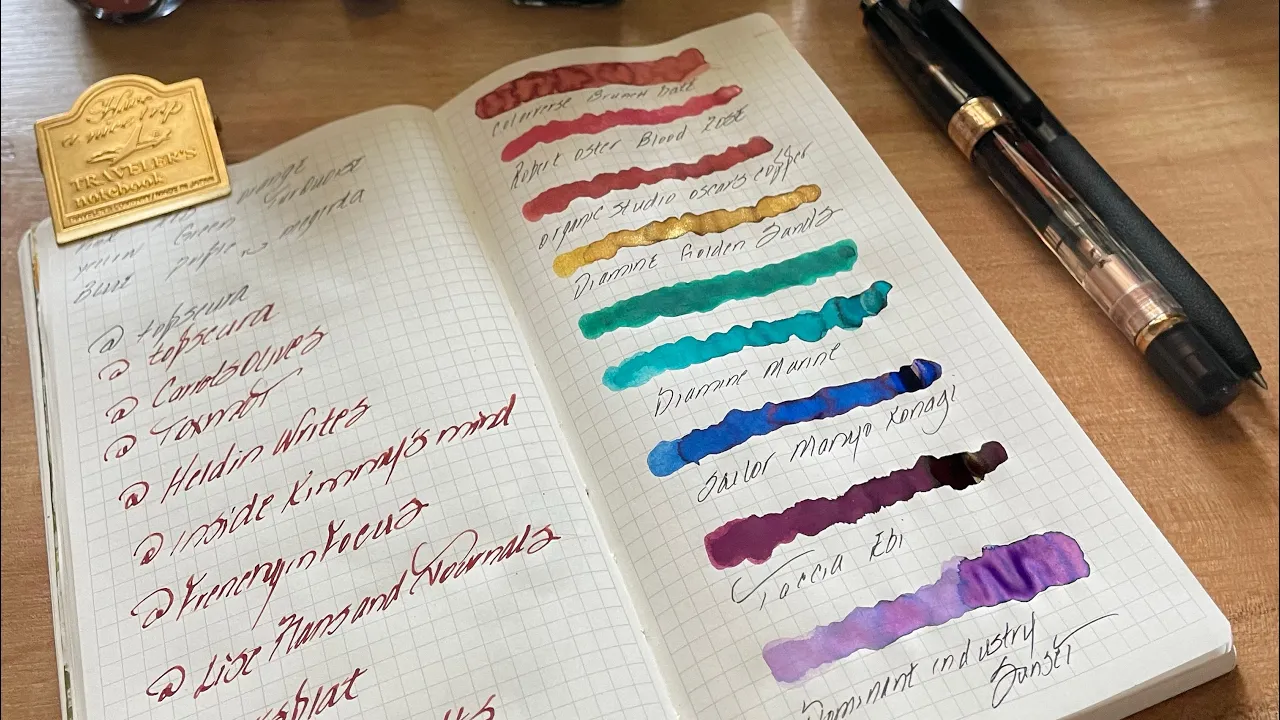 Have
a nice trip
TRAVELER'S
notebook
orange
Green Turquoise
Blue purple magenta
@ topseura
@ topseura
@ CarrotsOlives
@ Toxmot
@ Heldin Writes
@ inside Kimmy's mind
@ Frenchyinfocus
@ Lise Plans and Journals
Colorverse Brunch Date
Robert Oster Blood Rose
organic studio oscar's copper
Diamine Golden Sands
Diamine Marine
Sailor Manyo Konagi
Taccia Ebi
Dominant industry
Sunset